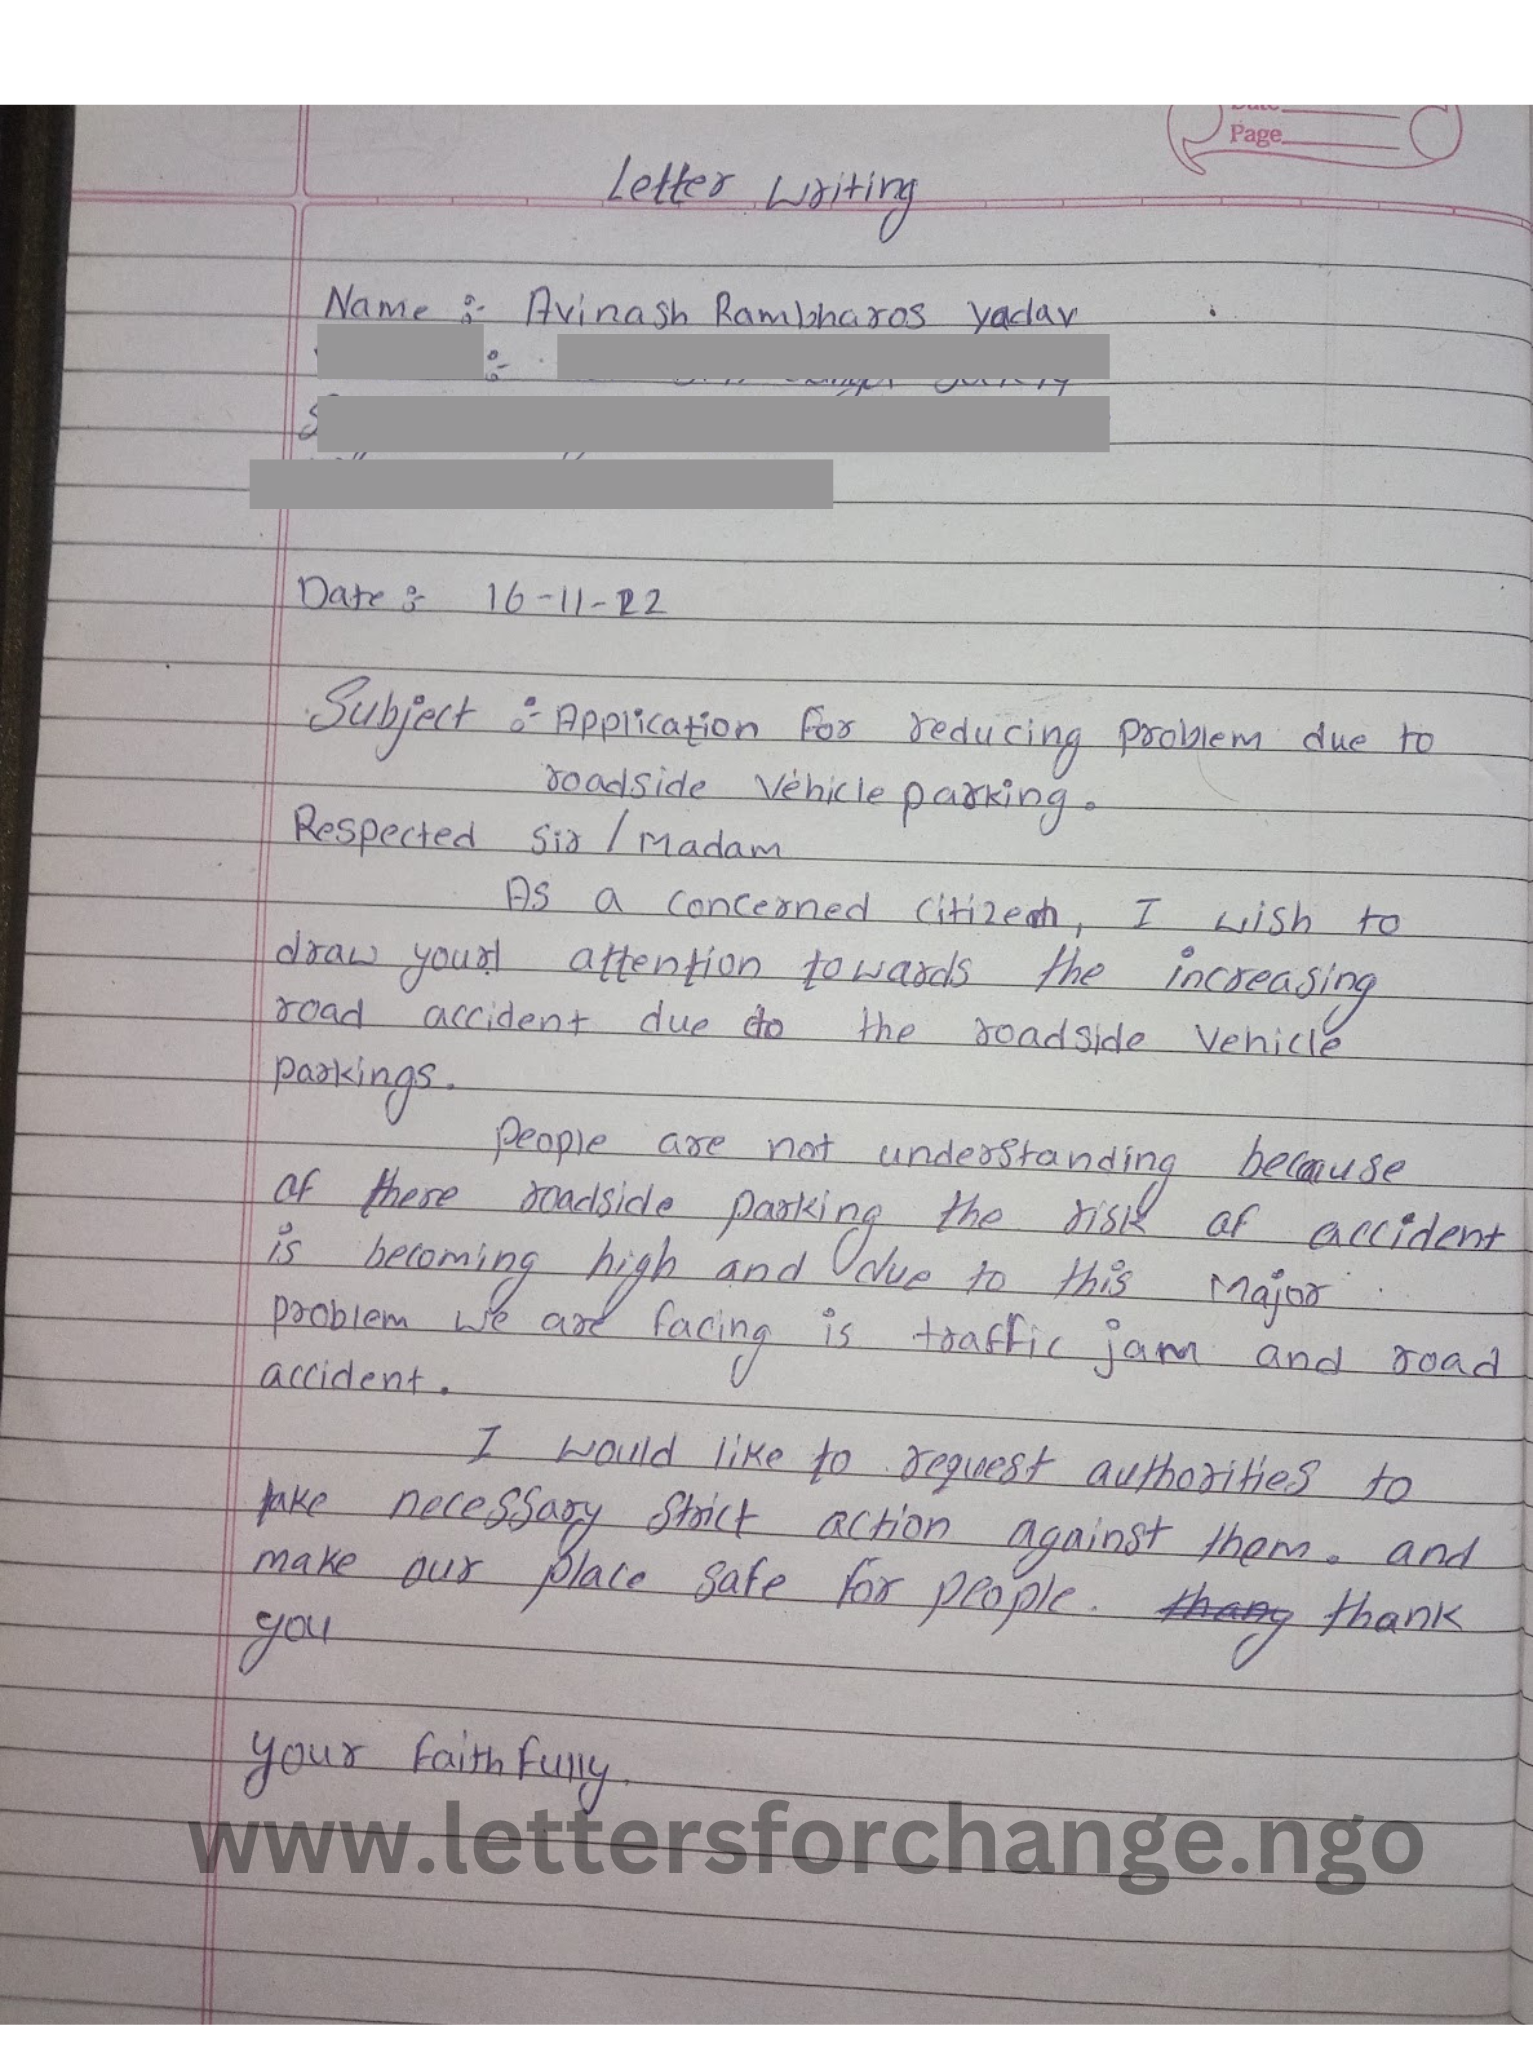 Page
Letter Writing
Name :- Avinash Rambharos Yadav
:-
Date :- 16-11-22
Subject :- Application for reducing problem due to
roadside vehicle parking.
Respected Sir / Madam
As a concerned citizen, I wish to
draw your attention towards the increasing
road accident due to the roadside vehicle
parkings.
People are not understanding because
of these roadside parking the risk of accident
is becoming high and due to this Major
problem we are facing is traffic jam and road
accident.
I would like to request authorities to
take necessary strict action against them. and
make our place safe for people. thang thank
you
your faithfully.
www.lettersforchange.ngo